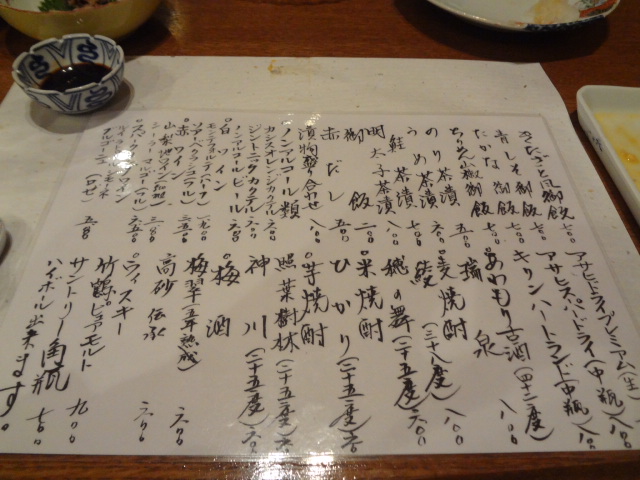 青しそ御飯 七〇〇
たかな御飯 七〇〇
ちりめん山椒御飯 五〇〇
のり茶漬 七〇〇
うめ茶漬 七〇〇
鮭茶漬 七〇〇
明太子茶漬 八〇〇
御飯 二〇〇
赤だし 五〇〇
漬物盛り合わせ 八〇〇
ノンアルコール類
カシスオレンジカクテル 六〇〇
ジントニックカクテル 六〇〇
ノンアルコールビール 六〇〇
白ワイン
赤ワイン
アサヒドライプレミアム(生)八〇〇
アサヒスーパードライ(中瓶)八〇〇
キリンハートランド(中瓶)八〇〇
あわもり古酒(四十二度)
瑞泉 八〇〇
麦焼酎
綾(三十八度)八〇〇
穂の舞(二十五度)六〇〇
米焼酎
ひかり(二十五度)六〇〇
芋焼酎
照葉樹林(二十五度)六〇〇
神川(二十五度)六〇〇
梅酒
梅翠(五年熟成) 六〇〇
高砂伝承 六〇〇
ウィスキー
竹鶴ピュアモルト 九〇〇
サントリー角瓶 七〇〇
ハイボール出来ます。